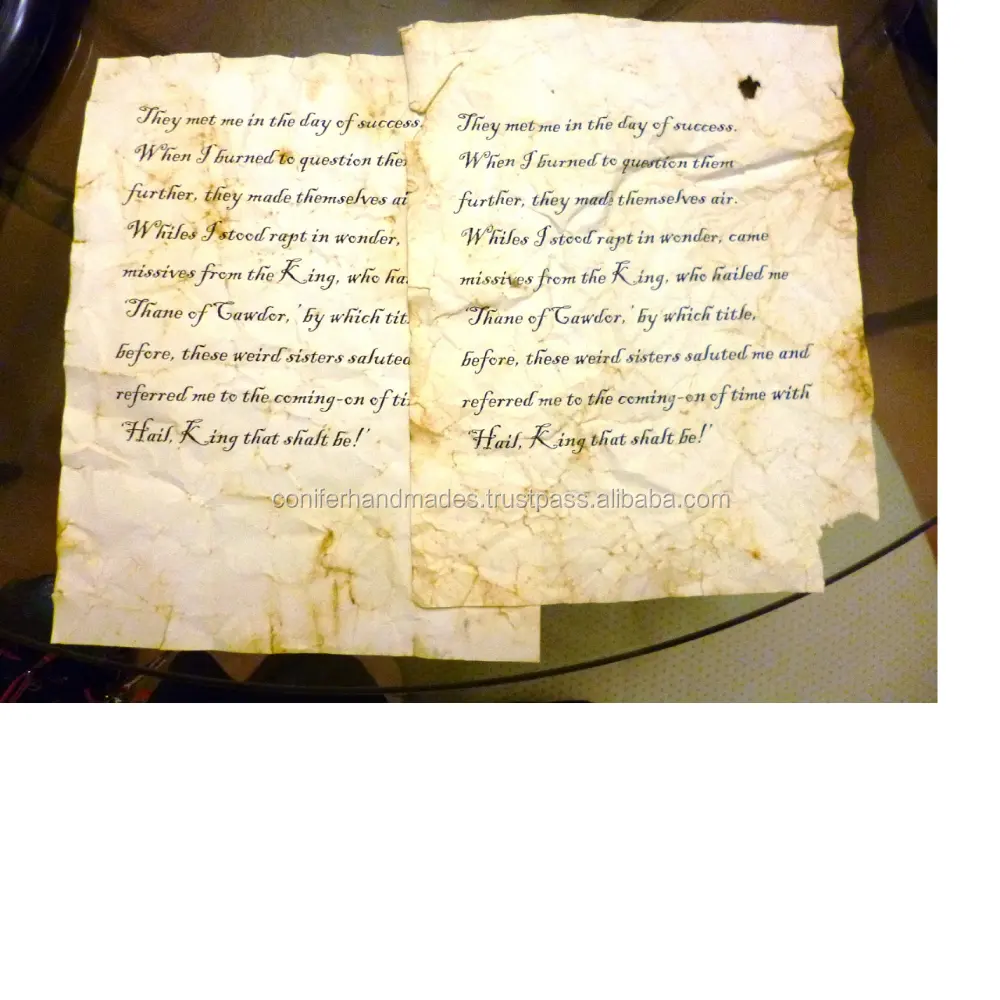 They met me in the day of success.
When I burned to question
further, they made themselves
Whiles I stood rapt in wonder,
missives from the King, who
'Thane of Cawdor,' by which
before, these weird sisters saluted
referred me to the coming-on of
'Hail, King that shalt be!'
They met me in the day of success.
When I burned to question them
further, they made themselves air.
Whiles I stood rapt in wonder, came
missives from the King, who hailed me
'Thane of Cawdor,' by which title,
before, these weird sisters saluted me and
referred me to the coming-on of time with
'Hail, King that shalt be!'
coniferhandmades.trustpass.alibaba.com